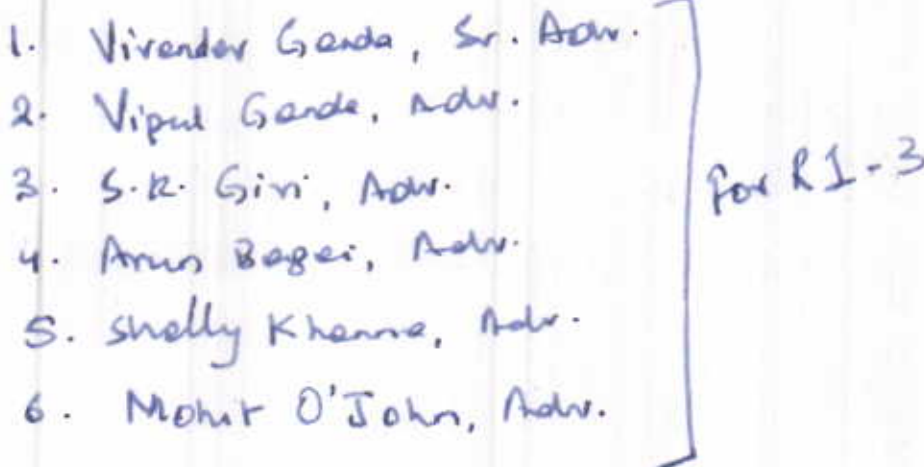 1. Virender Ganda, Sr. Adv.
2. Vipul Ganda, Adv.
3. S.R. Giri, Adv.
4. Arun Bagai, Adv.
5. Shelly Khanna, Adv.
6. Mohit O'John, Adv.
For R1-3